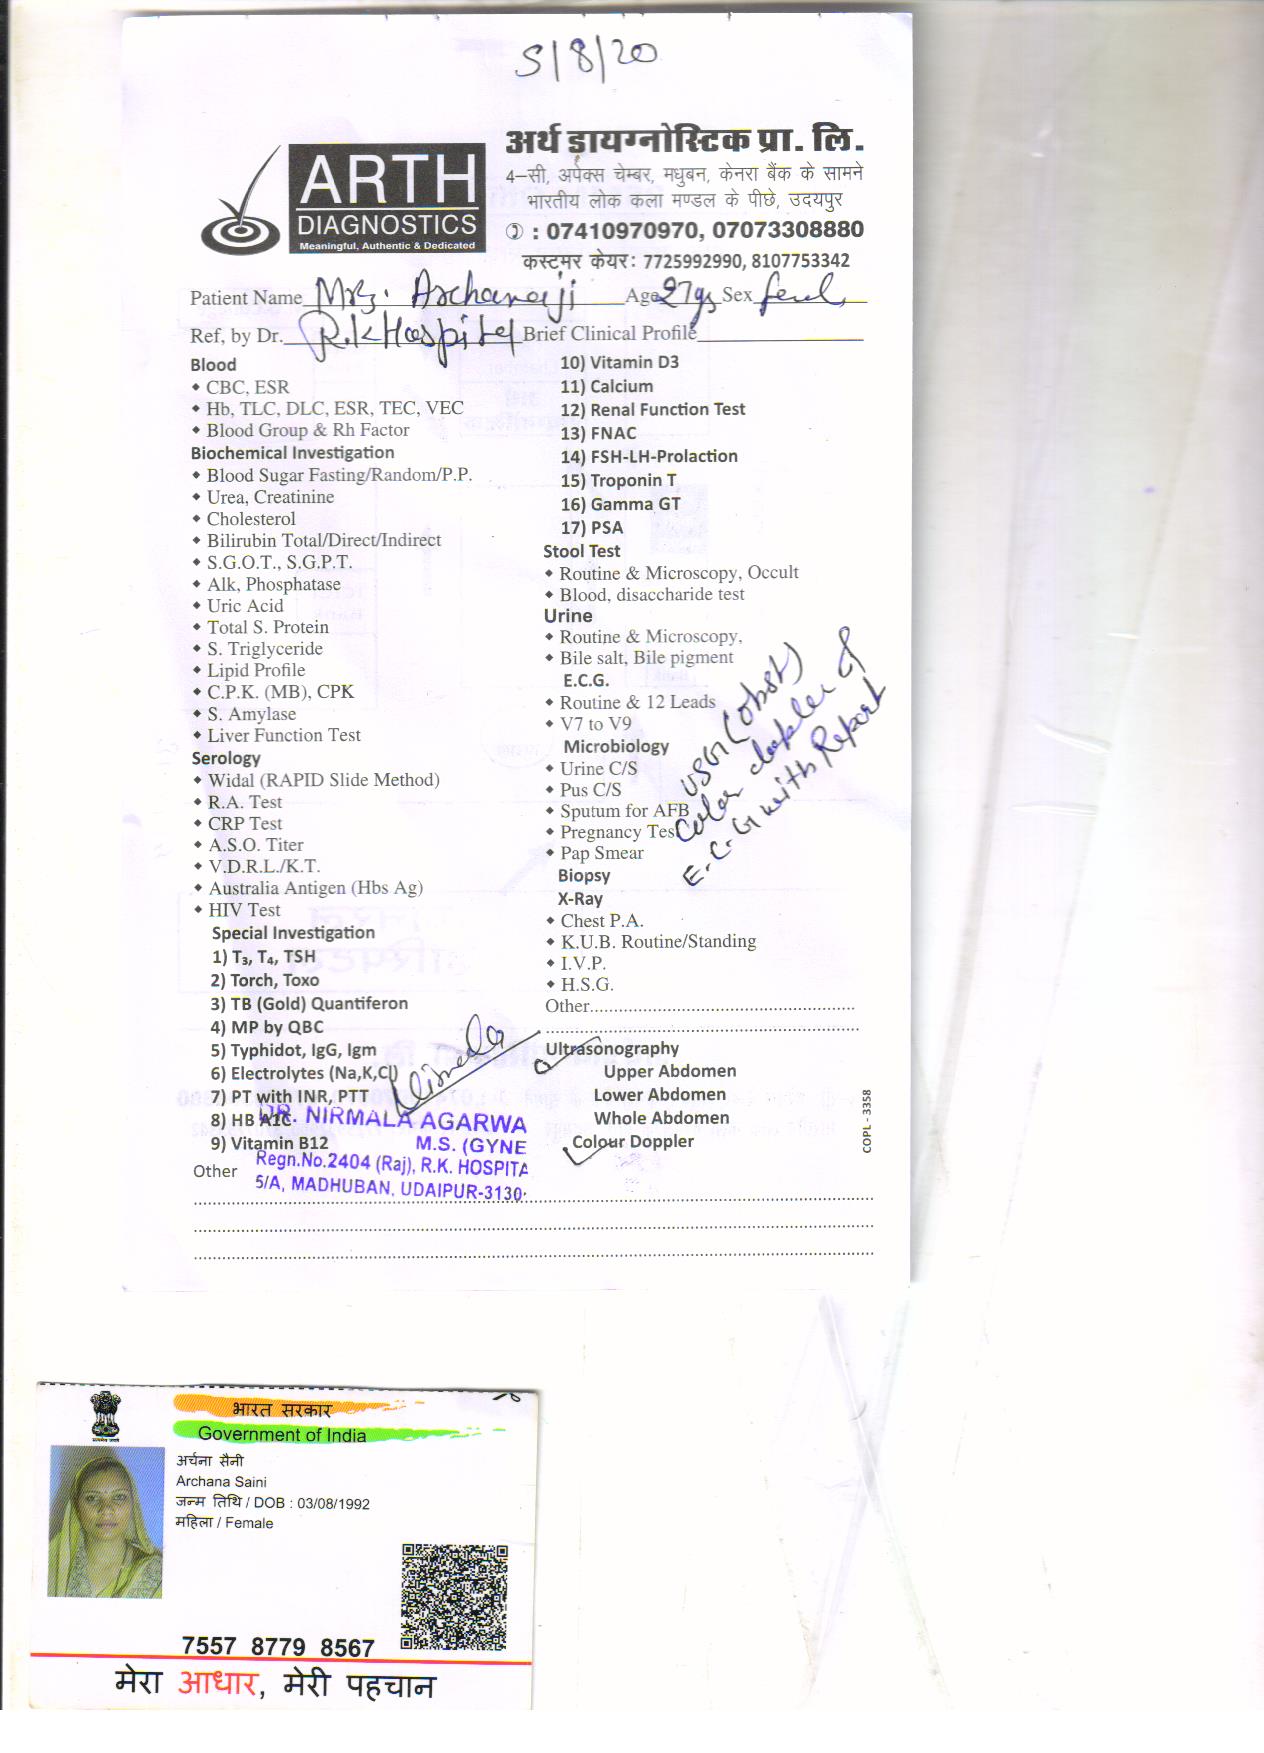 5/8/20
अर्थ डायग्नोस्टिक प्रा. लि.
4–सी, अपेक्स चेम्बर, मधुबन, केनरा बैंक के सामने
भारतीय लोक कला मण्डल के पीछे, उदयपुर
: 07410970970, 07073308880
कस्टमर केयर: 7725992990, 8107753342
ARTH
DIAGNOSTICS
Meaningful, Authentic & Dedicated
Patient Name Mrs. Archanaji Age 27 ys Sex
Ref, by Dr. R.K Hospital Brief Clinical Profile
Blood
CBC, ESR
Hb, TLC, DLC, ESR, TEC, VEC
Blood Group & Rh Factor
Biochemical Investigation
Blood Sugar Fasting/Random/P.P.
Urea, Creatinine
Cholesterol
Bilirubin Total/Direct/Indirect
S.G.O.T., S.G.P.T.
Alk, Phosphatase
Uric Acid
Total S. Protein
S. Triglyceride
Lipid Profile
C.P.K. (MB), CPK
S. Amylase
Liver Function Test
Serology
Widal (RAPID Slide Method)
R.A. Test
CRP Test
A.S.O. Titer
V.D.R.L./K.T.
Australia Antigen (Hbs Ag)
HIV Test
Special Investigation
1) T₃, T₄, TSH
2) Torch, Toxo
3) TB (Gold) Quantiferon
4) MP by QBC
5) Typhidot, IgG, Igm
6) Electrolytes (Na,K,Cl)
7) PT with INR, PTT
8) HB A1C
9) Vitamin B12
Other
DR. NIRMALA AGARWA
M.S. (GYNE
Regn.No.2404 (Raj), R.K. HOSPITA
5/A, MADHUBAN, UDAIPUR-3130
10) Vitamin D3
11) Calcium
12) Renal Function Test
13) FNAC
14) FSH-LH-Prolaction
15) Troponin T
16) Gamma GT
17) PSA
Stool Test
Routine & Microscopy, Occult
Blood, disaccharide test
Urine
Routine & Microscopy,
Bile salt, Bile pigment
E.C.G.
Routine & 12 Leads
V7 to V9
Microbiology
Urine C/S
Pus C/S
Sputum for AFB
Pregnancy Test
Pap Smear
Biopsy
X-Ray
Chest P.A.
K.U.B. Routine/Standing
I.V.P.
H.S.G.
Other
USG (obst)
Color doppler &
E.C.G with Report
Ultrasonography
Upper Abdomen
Lower Abdomen
Whole Abdomen
Colour Doppler
COPL - 3358
भारत सरकार
Government of India
अर्चना सैनी
Archana Saini
जन्म तिथि / DOB : 03/08/1992
महिला / Female
7557 8779 8567
मेरा आधार, मेरी पहचान